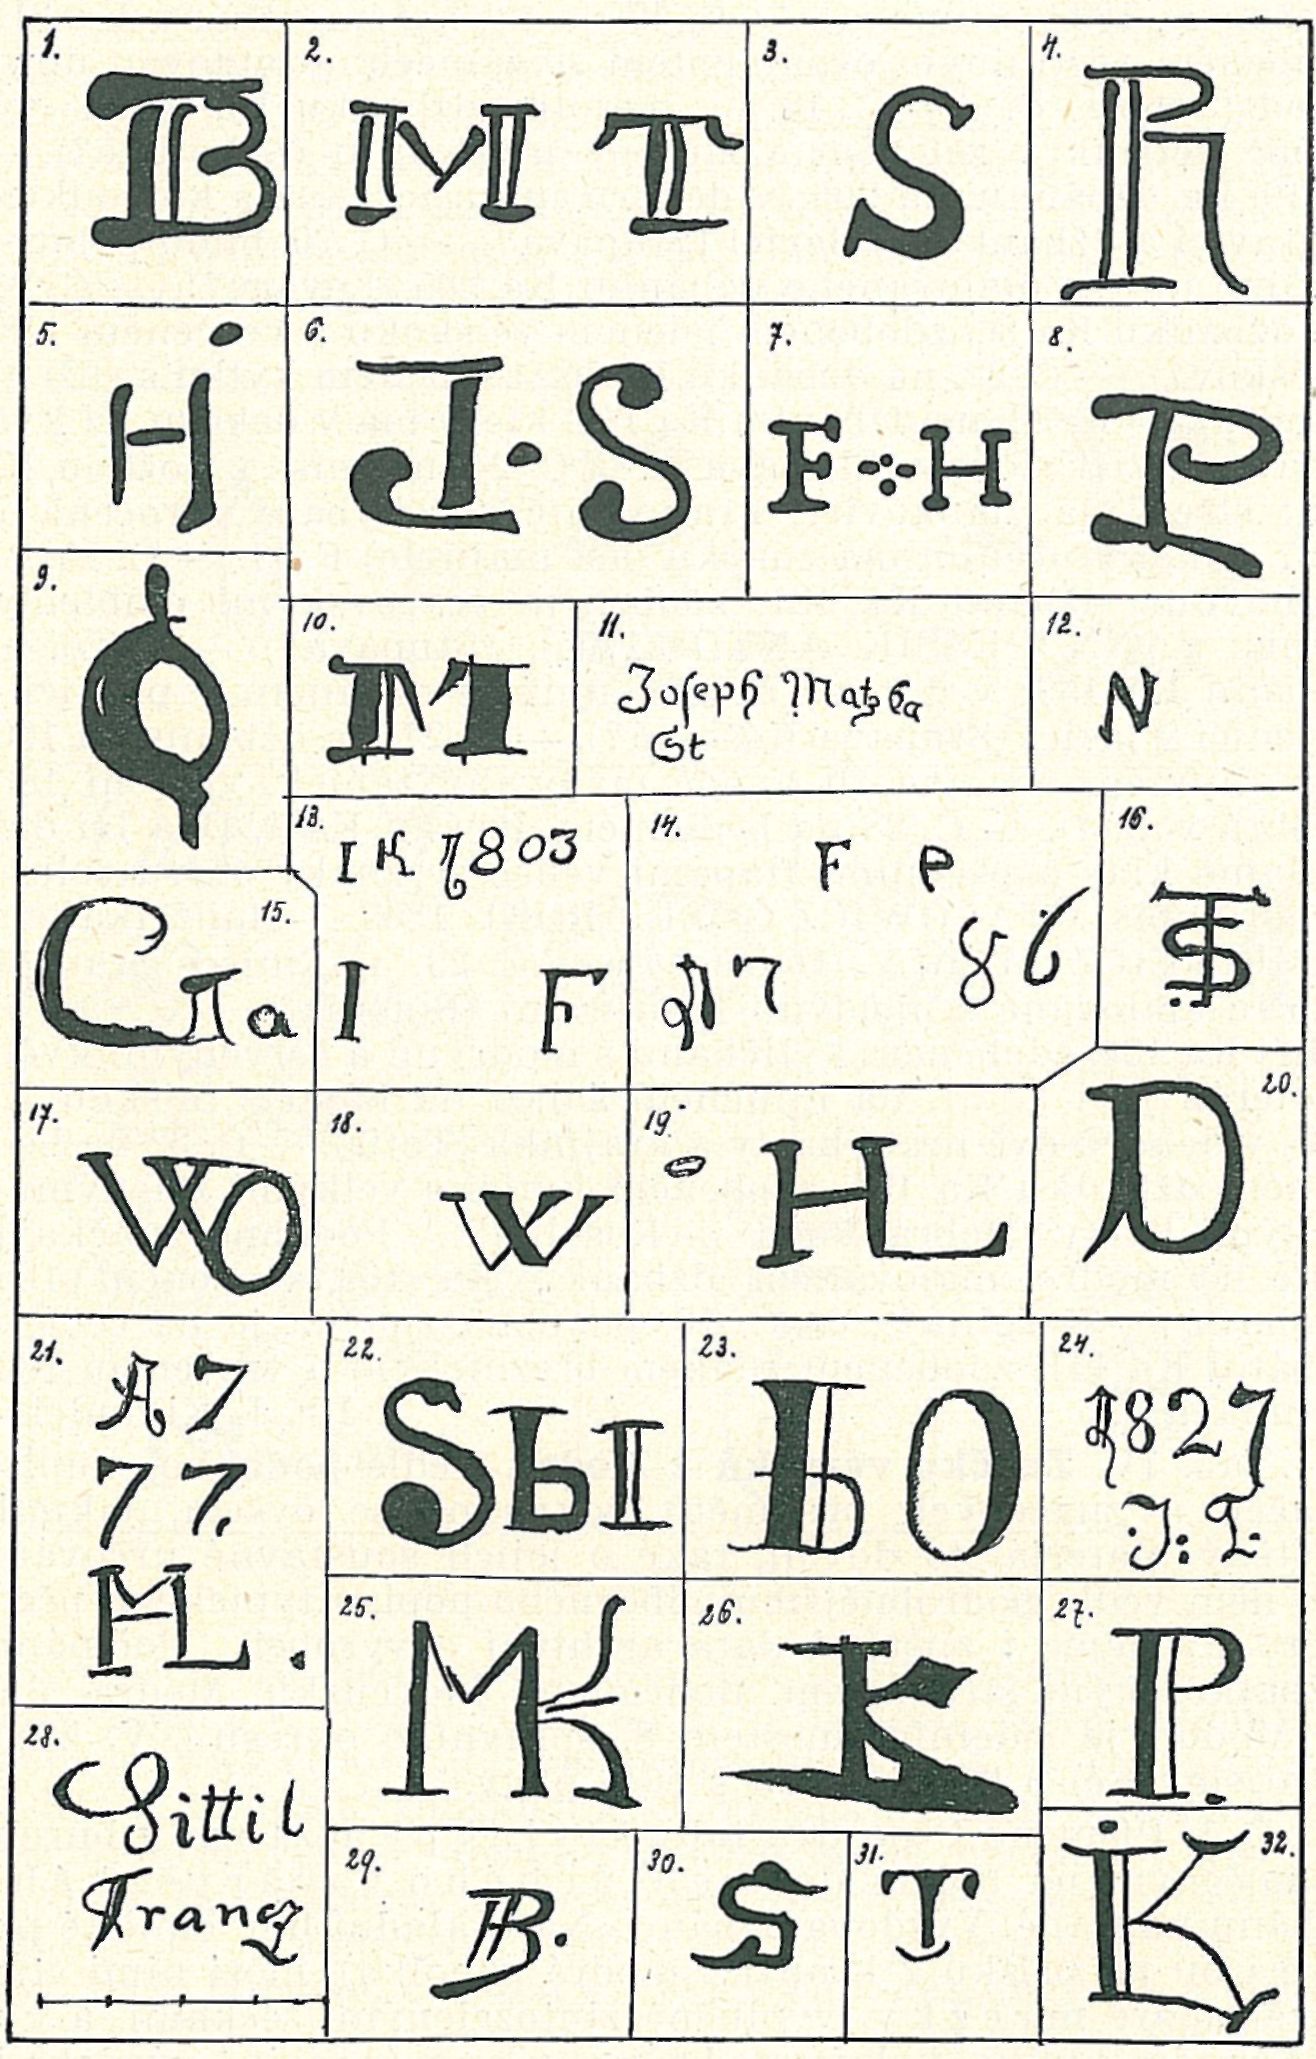 1.
B
2.
M T
3.
S
4.
R
5.
H
6.
J·S
7.
F H
8.
P
9.
10.
M
11.
Joseph
St
12.
N
13.
I K 1803
I F
14.
F P
17 86
15.
C a
16.
TS
17.
WO
18.
W
19.
HL
20.
D
21.
A7
77.
HL.
22.
SЫ
23.
ЬO
24.
1827
J: L
25.
MK
26.
K
27.
P.
28.
Sittil
Franz
29.
B.
30.
S
31.
T
32.
K